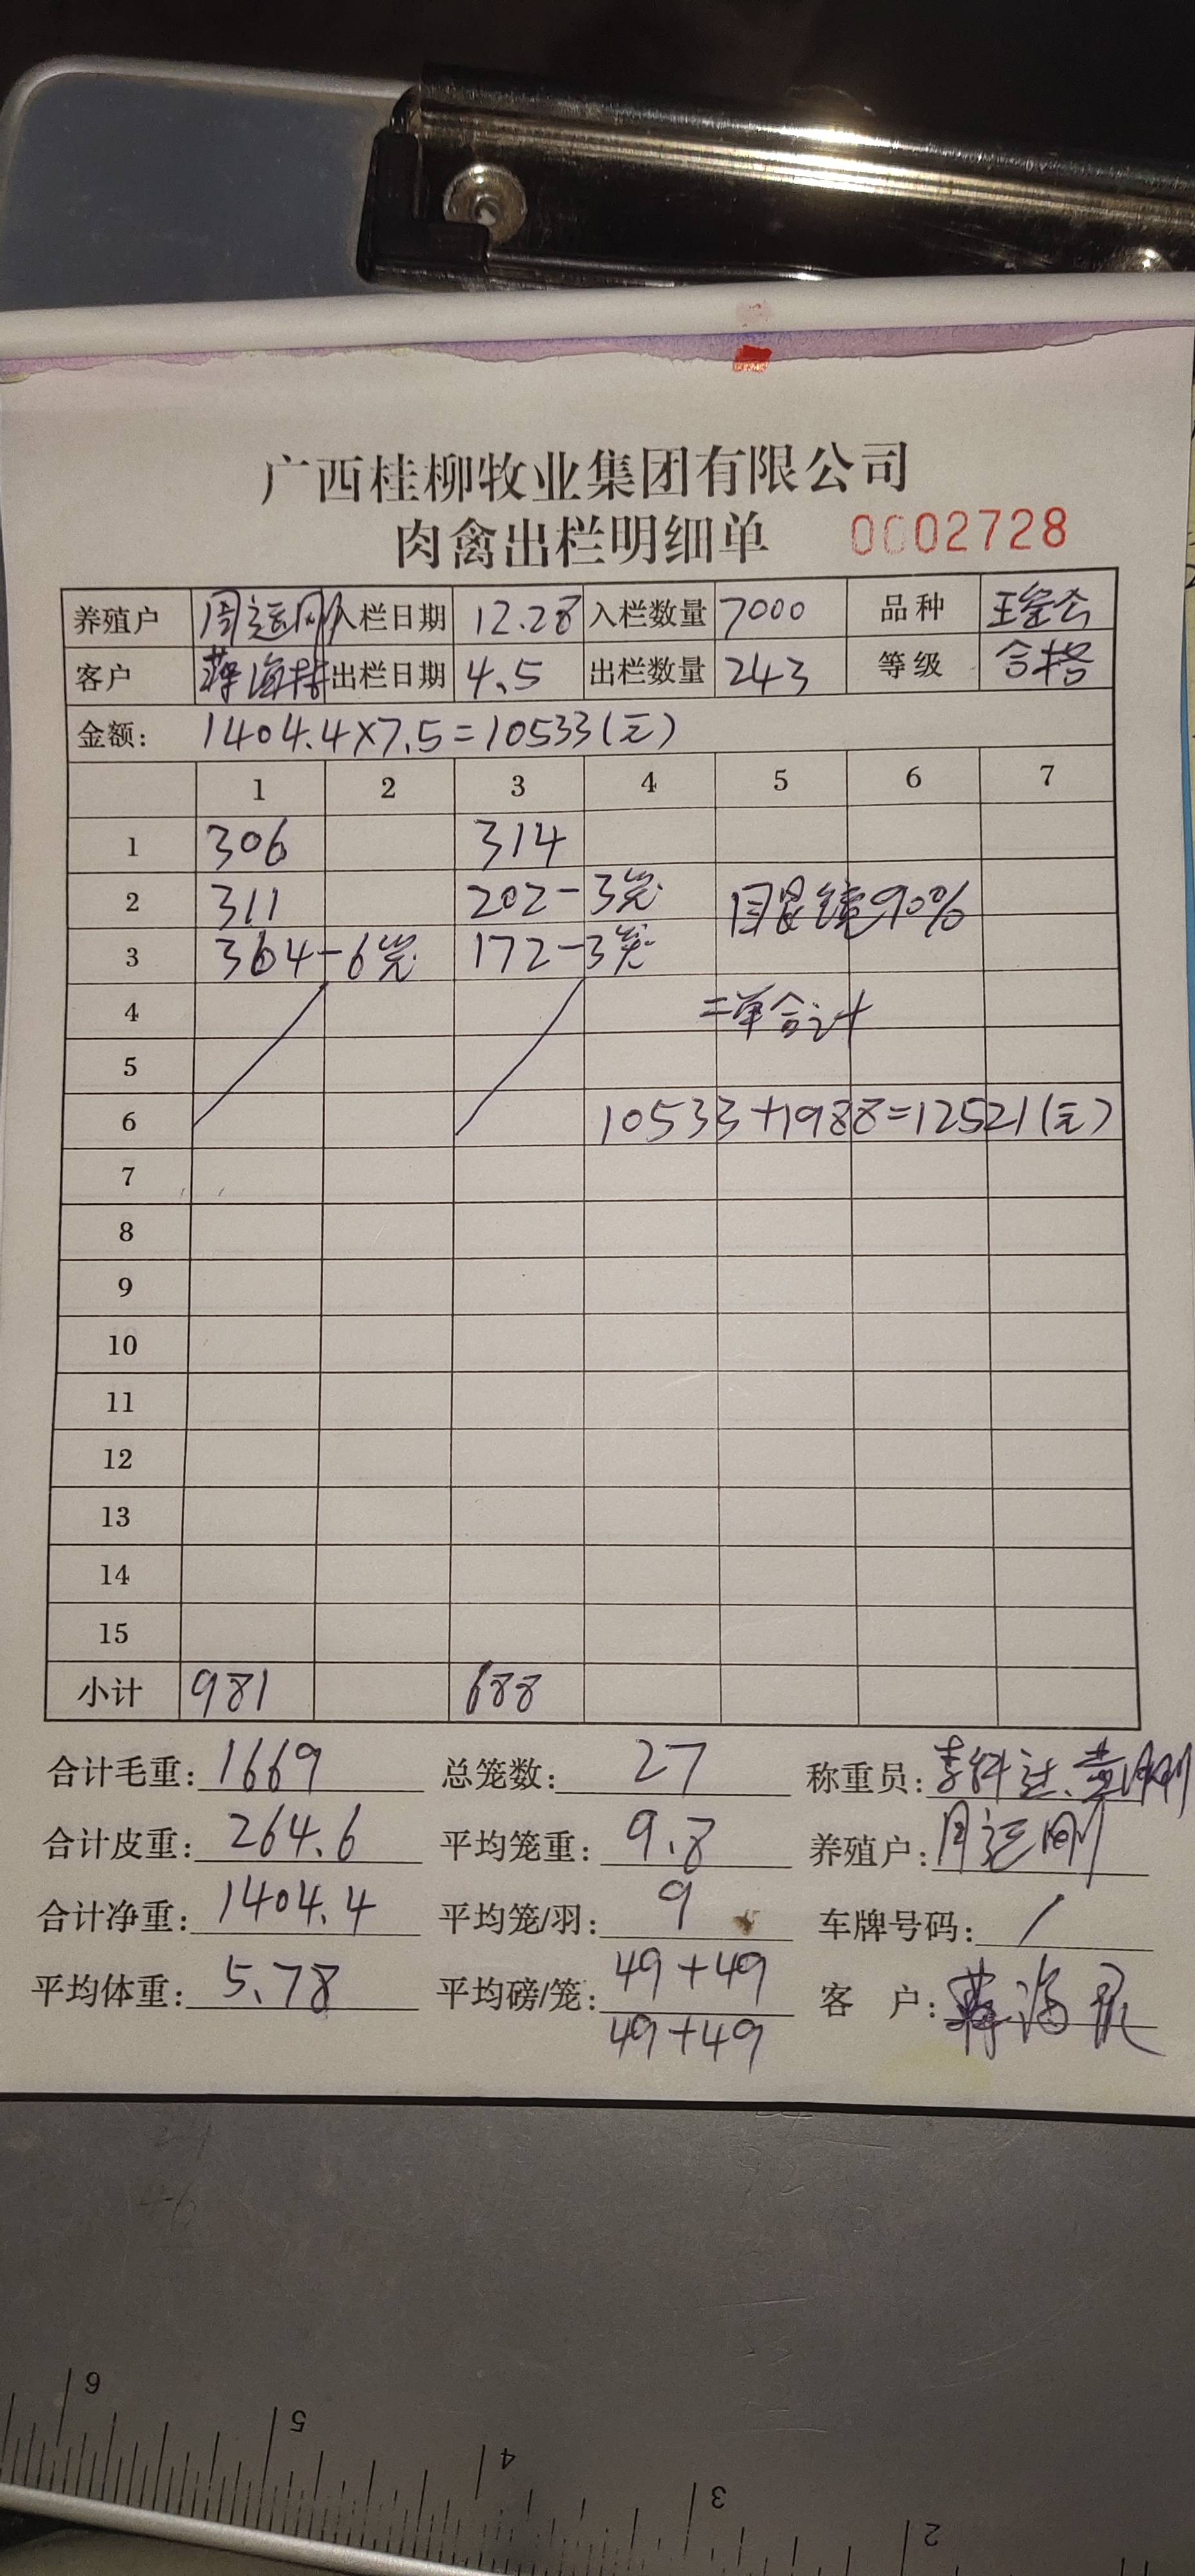 广西桂柳牧业集团有限公司
肉禽出栏明细单 0002728
养殖户 周运刚 入栏日期 12.28 入栏数量 7000 品种
客户 蒋海 出栏日期 4.5 出栏数量 243 等级 合格
金额: 1404.4×7.5=10533(元)
1 2 3 4 5 6 7
1 306 314
2 311 202-3笼 眼镜90%
3 364-6笼 172-3笼
4 二单合计
5
6 10533+1988=12521(元)
7
8
9
10
11
12
13
14
15
小计 981 688
合计毛重: 1669 总笼数: 27 称重员:
合计皮重: 264.6 平均笼重: 9.8 养殖户: 周运刚
合计净重: 1404.4 平均笼/羽: 9 车牌号码: /
平均体重: 5.78 平均磅/笼: 49+49 客户: 蒋海
49+49
6 5 4 3 2